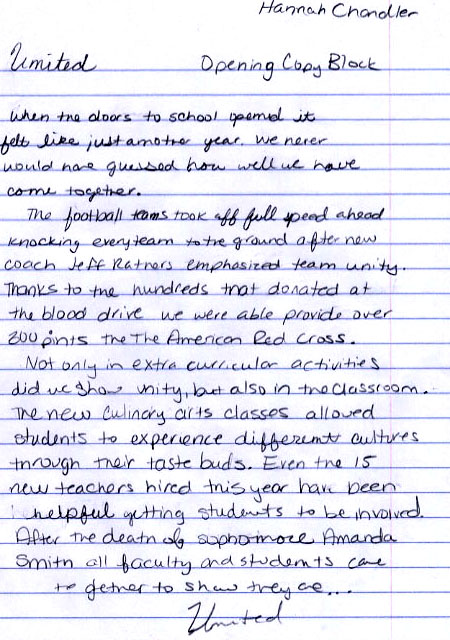 Hannah Chandler
United Opening Copy Block
When the doors to school opened it
felt like just another year. We never
would have guessed how well we have
come together.
The football teams took off full speed ahead
knocking every team to the ground after new
coach Jeff Ratners emphasized team unity.
Thanks to the hundreds that donated at
the blood drive we were able provide over
200 pints the The American Red Cross.
Not only in extra curricular activities
did we show unity, but also in the classroom.
The new Culinary arts classes allowed
students to experience different cultures
through their taste buds. Even the 15
new teachers hired this year have been
helpful getting students to be involved.
After the death of sophomore Amanda
Smith all faculty and students came
together to show they are...
United